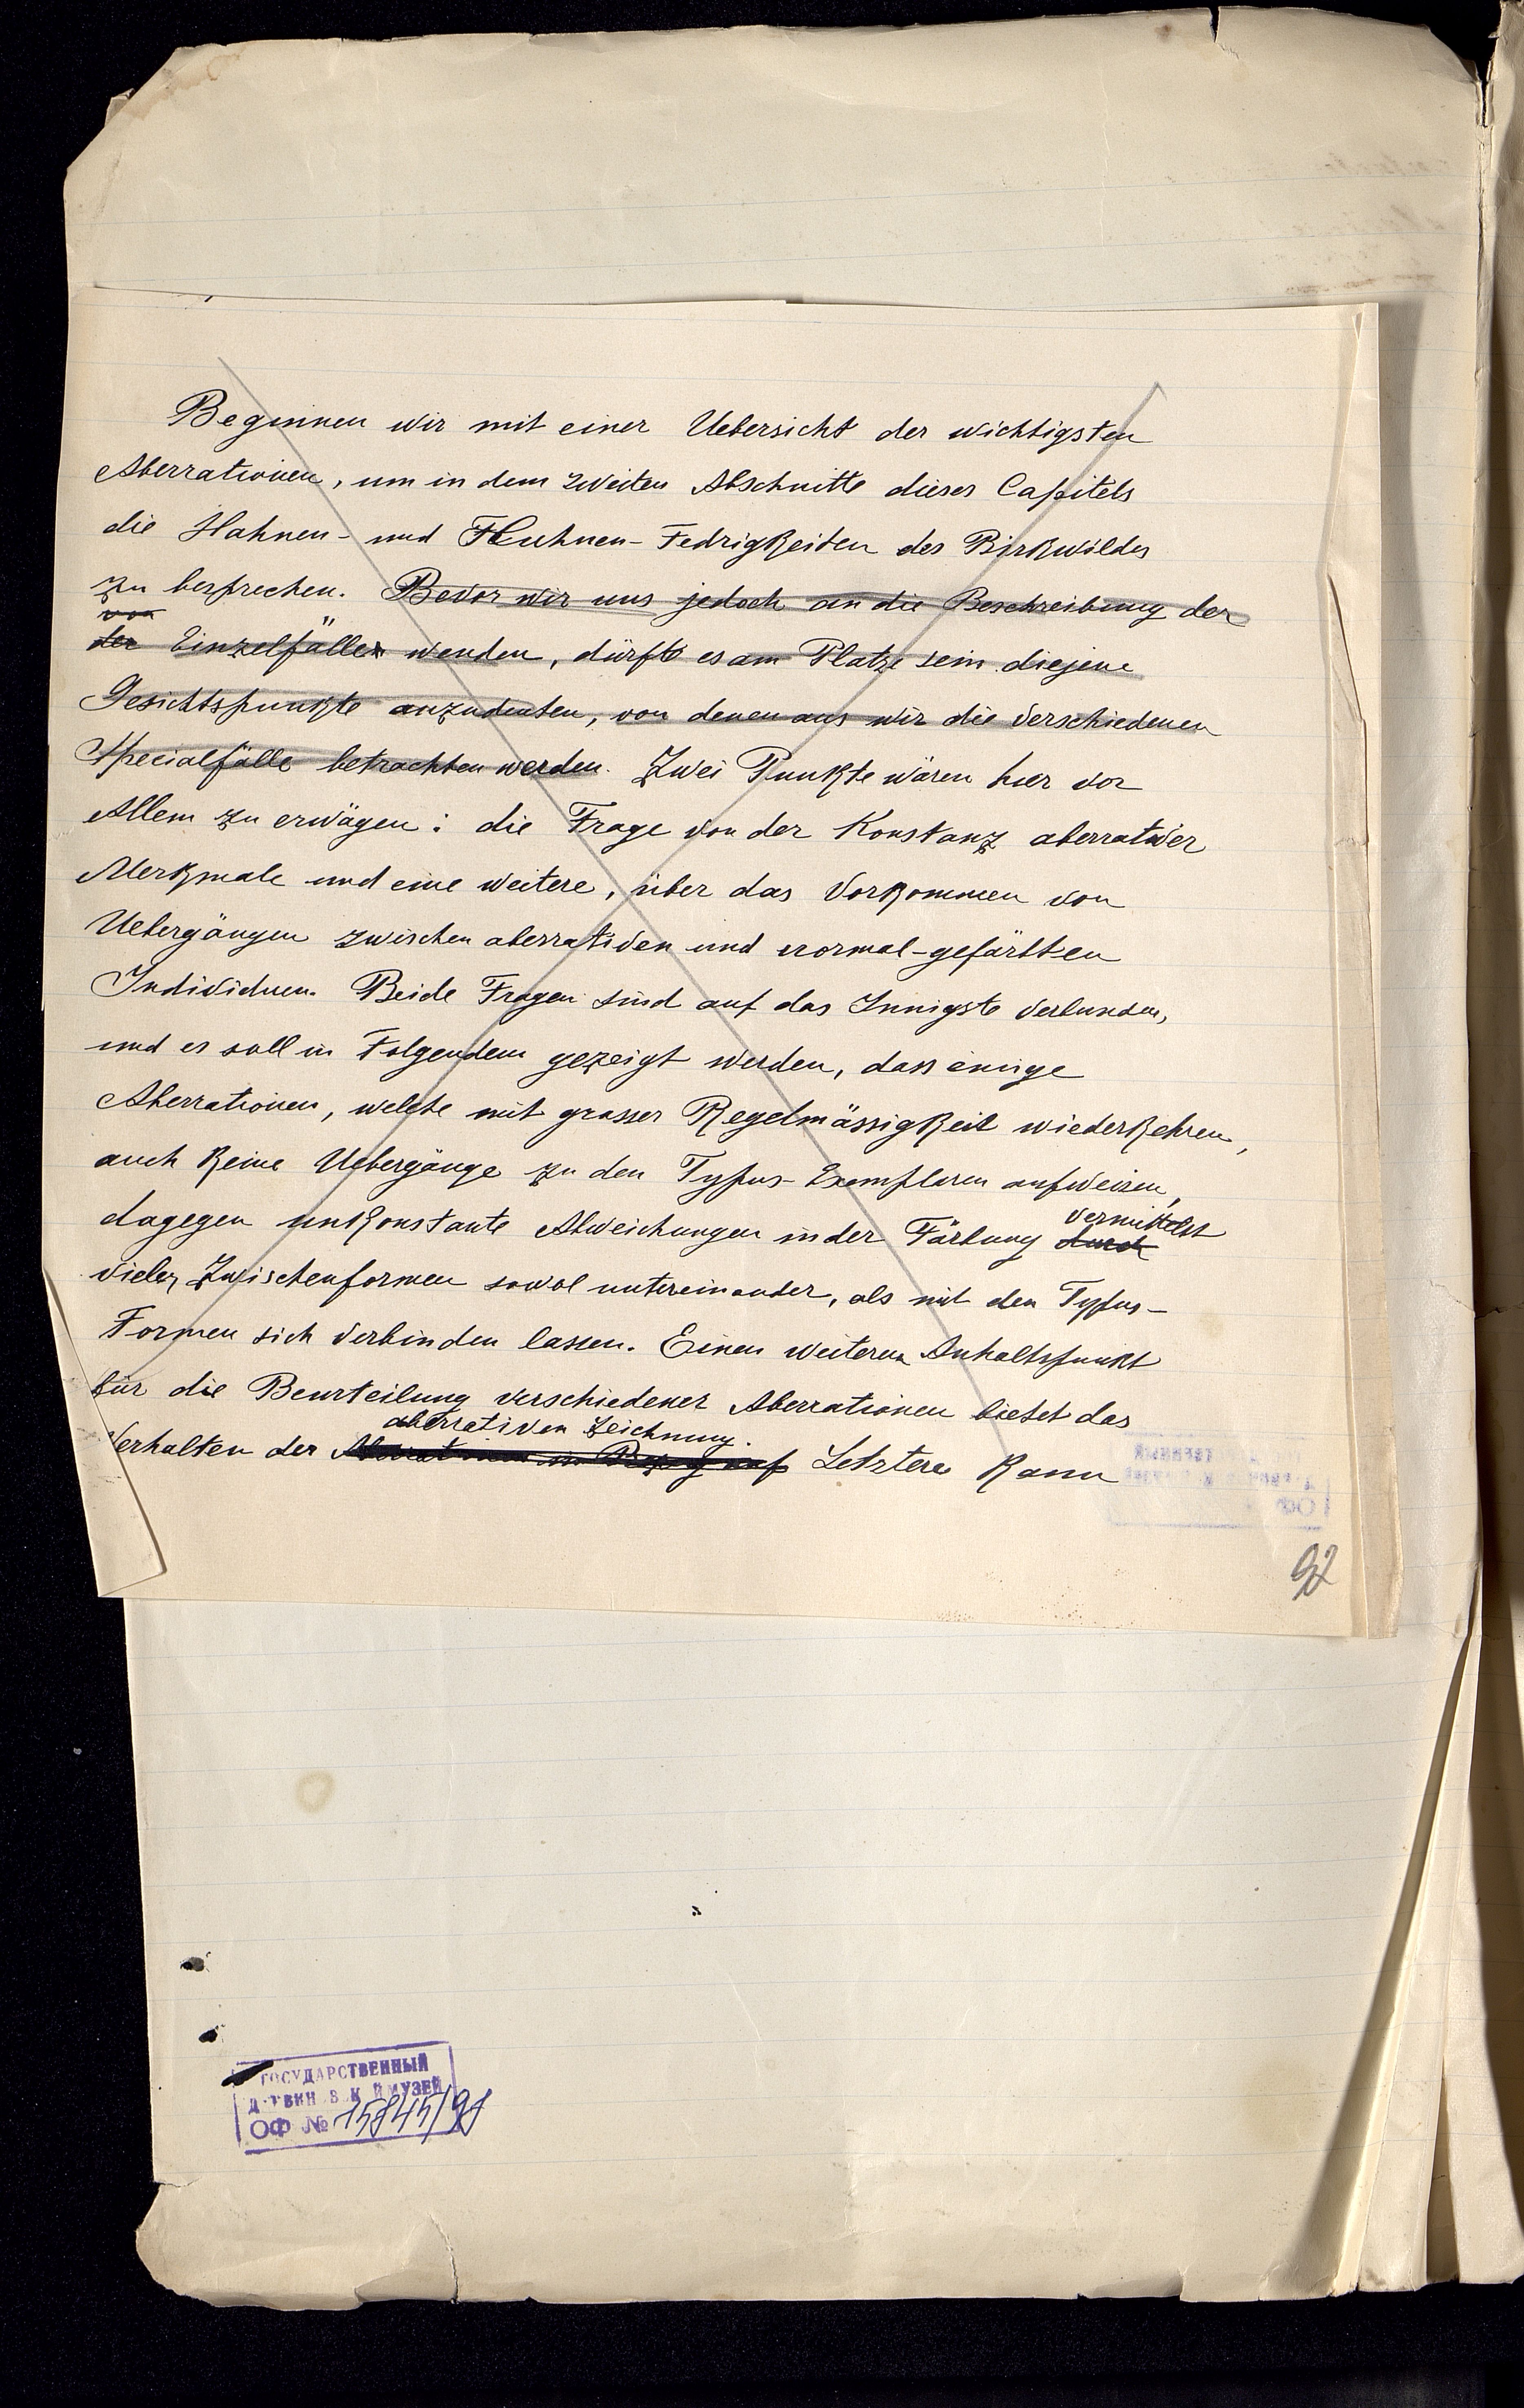 Beginnen wir mit einer Uebersicht der wichtigsten
Aberrationen, um in dem zweiten Abschnitte dieses Capitels
die Hahnen- und Huhnen-Fedrigkeiten des Birkwildes
zu besprechen. Bevor wir uns jedoch an die Beschreibung der
von
der Einzelfälle wenden, dürfte es am Platze sein diejene
Gesichtspunkte anzudeuten, von denen aus wir die verschiedenen
Specialfälle betrachten werden. Zwei Punkte wären hier vor
Allem zu erwägen: die Frage von der Konstanz aberrativer
Merkmale und eine weitere, über das Vorkommen von
Uebergängen zwischen aberrativen und normal-gefärbten
Individuen. Beide Fragen sind auf das Innigste verbunden,
und es soll in Folgendem gezeigt werden, dass einige
Aberrationen, welche mit grosser Regelmässigkeit wiederkehren,
auch keine Uebergänge zu den Typus-Exemplaren aufweisen,
vermittelst
dagegen unkonstante Abweichungen in der Färbung durch
vieler Zwischenformen sowol untereinander, als mit den Typus-
Formen sich verbinden lassen. Einen weiteren Anhaltspunkt
für die Beurteilung verschiedener Aberrationen bietet das
aberrativen Zeichnung.
Verhalten der Aberrationen in Bezug auf Letztere kann
92
ГОСУДАРСТВЕННЫЙ
МУЗЕЙ
ОФ № 15845/98